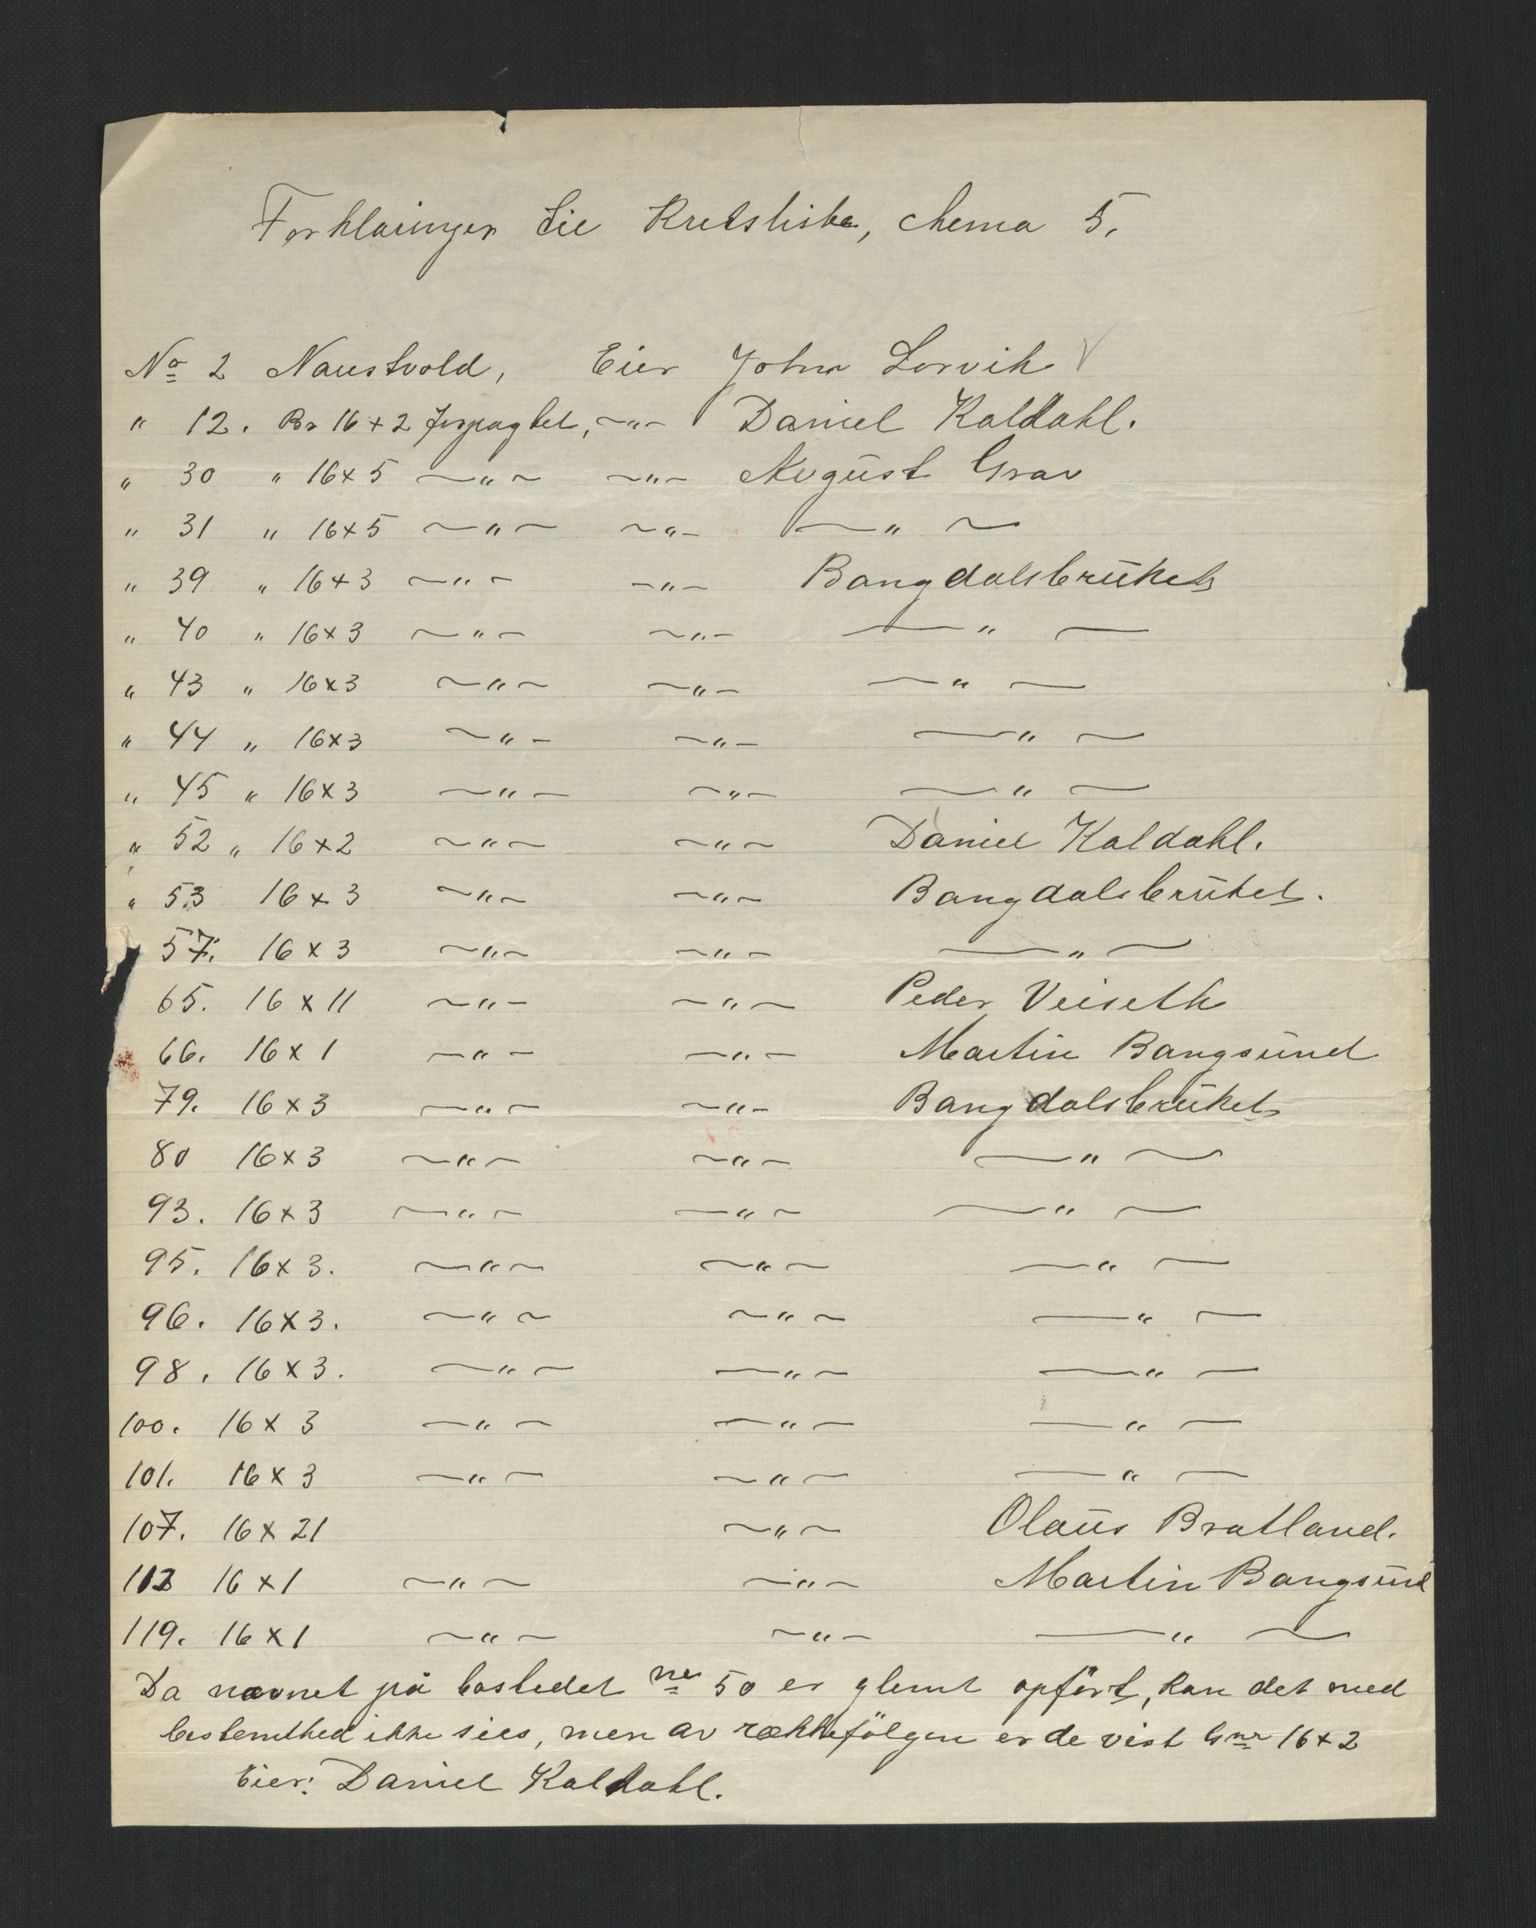 Forklaringer til Kretsliste, chema 5.
No 2 Naustvold, Eier John Lorvik
" 12. Br 16+2 forpagtet, —"— Daniel Kaldahl.
" 30 " 16x5 —"— —"— August Grav
" 31 " 16x5 —"— —"— —"—
" 39 " 16+3 —"— —"— Bangdalsbruket
" 40 " 16x3 —"— —"— —"—
" 43 " 16x3 —"— —"— —"—
" 44 " 16x3 —"— —"— —"—
" 45 " 16x3 —"— —"— —"—
" 52 " 16x2 —"— —"— Daniel Kaldahl.
" 53 16x3 —"— —"— Bangdalsbruket.
57. 16x3 —"— —"— —"—
65. 16x11 —"— —"— Peder Veiseth
66. 16x1 —"— —"— Martin Bangsund
79. 16x3 —"— —"— Bangdalsbruket
80 16x3 —"— —"— —"—
93. 16x3 —"— —"— —"—
95. 16x3. —"— —"— —"—
96. 16x3. —"— —"— —"—
98. 16x3. —"— —"— —"—
100. 16x3 —"— —"— —"—
101. 16x3 —"— —"— —"—
107. 16x21 —"— Olaus Bratland.
16x1 —"— —"— Martin Bangsund
119. 16x1 —"— —"— —"—
Da navnet på bostedet nr 50 er glemt opført, kan det med
bestemthed ikke sies, men av rækkefølgen er de vist Gnr 16+2
Eier: Daniel Kaldahl.